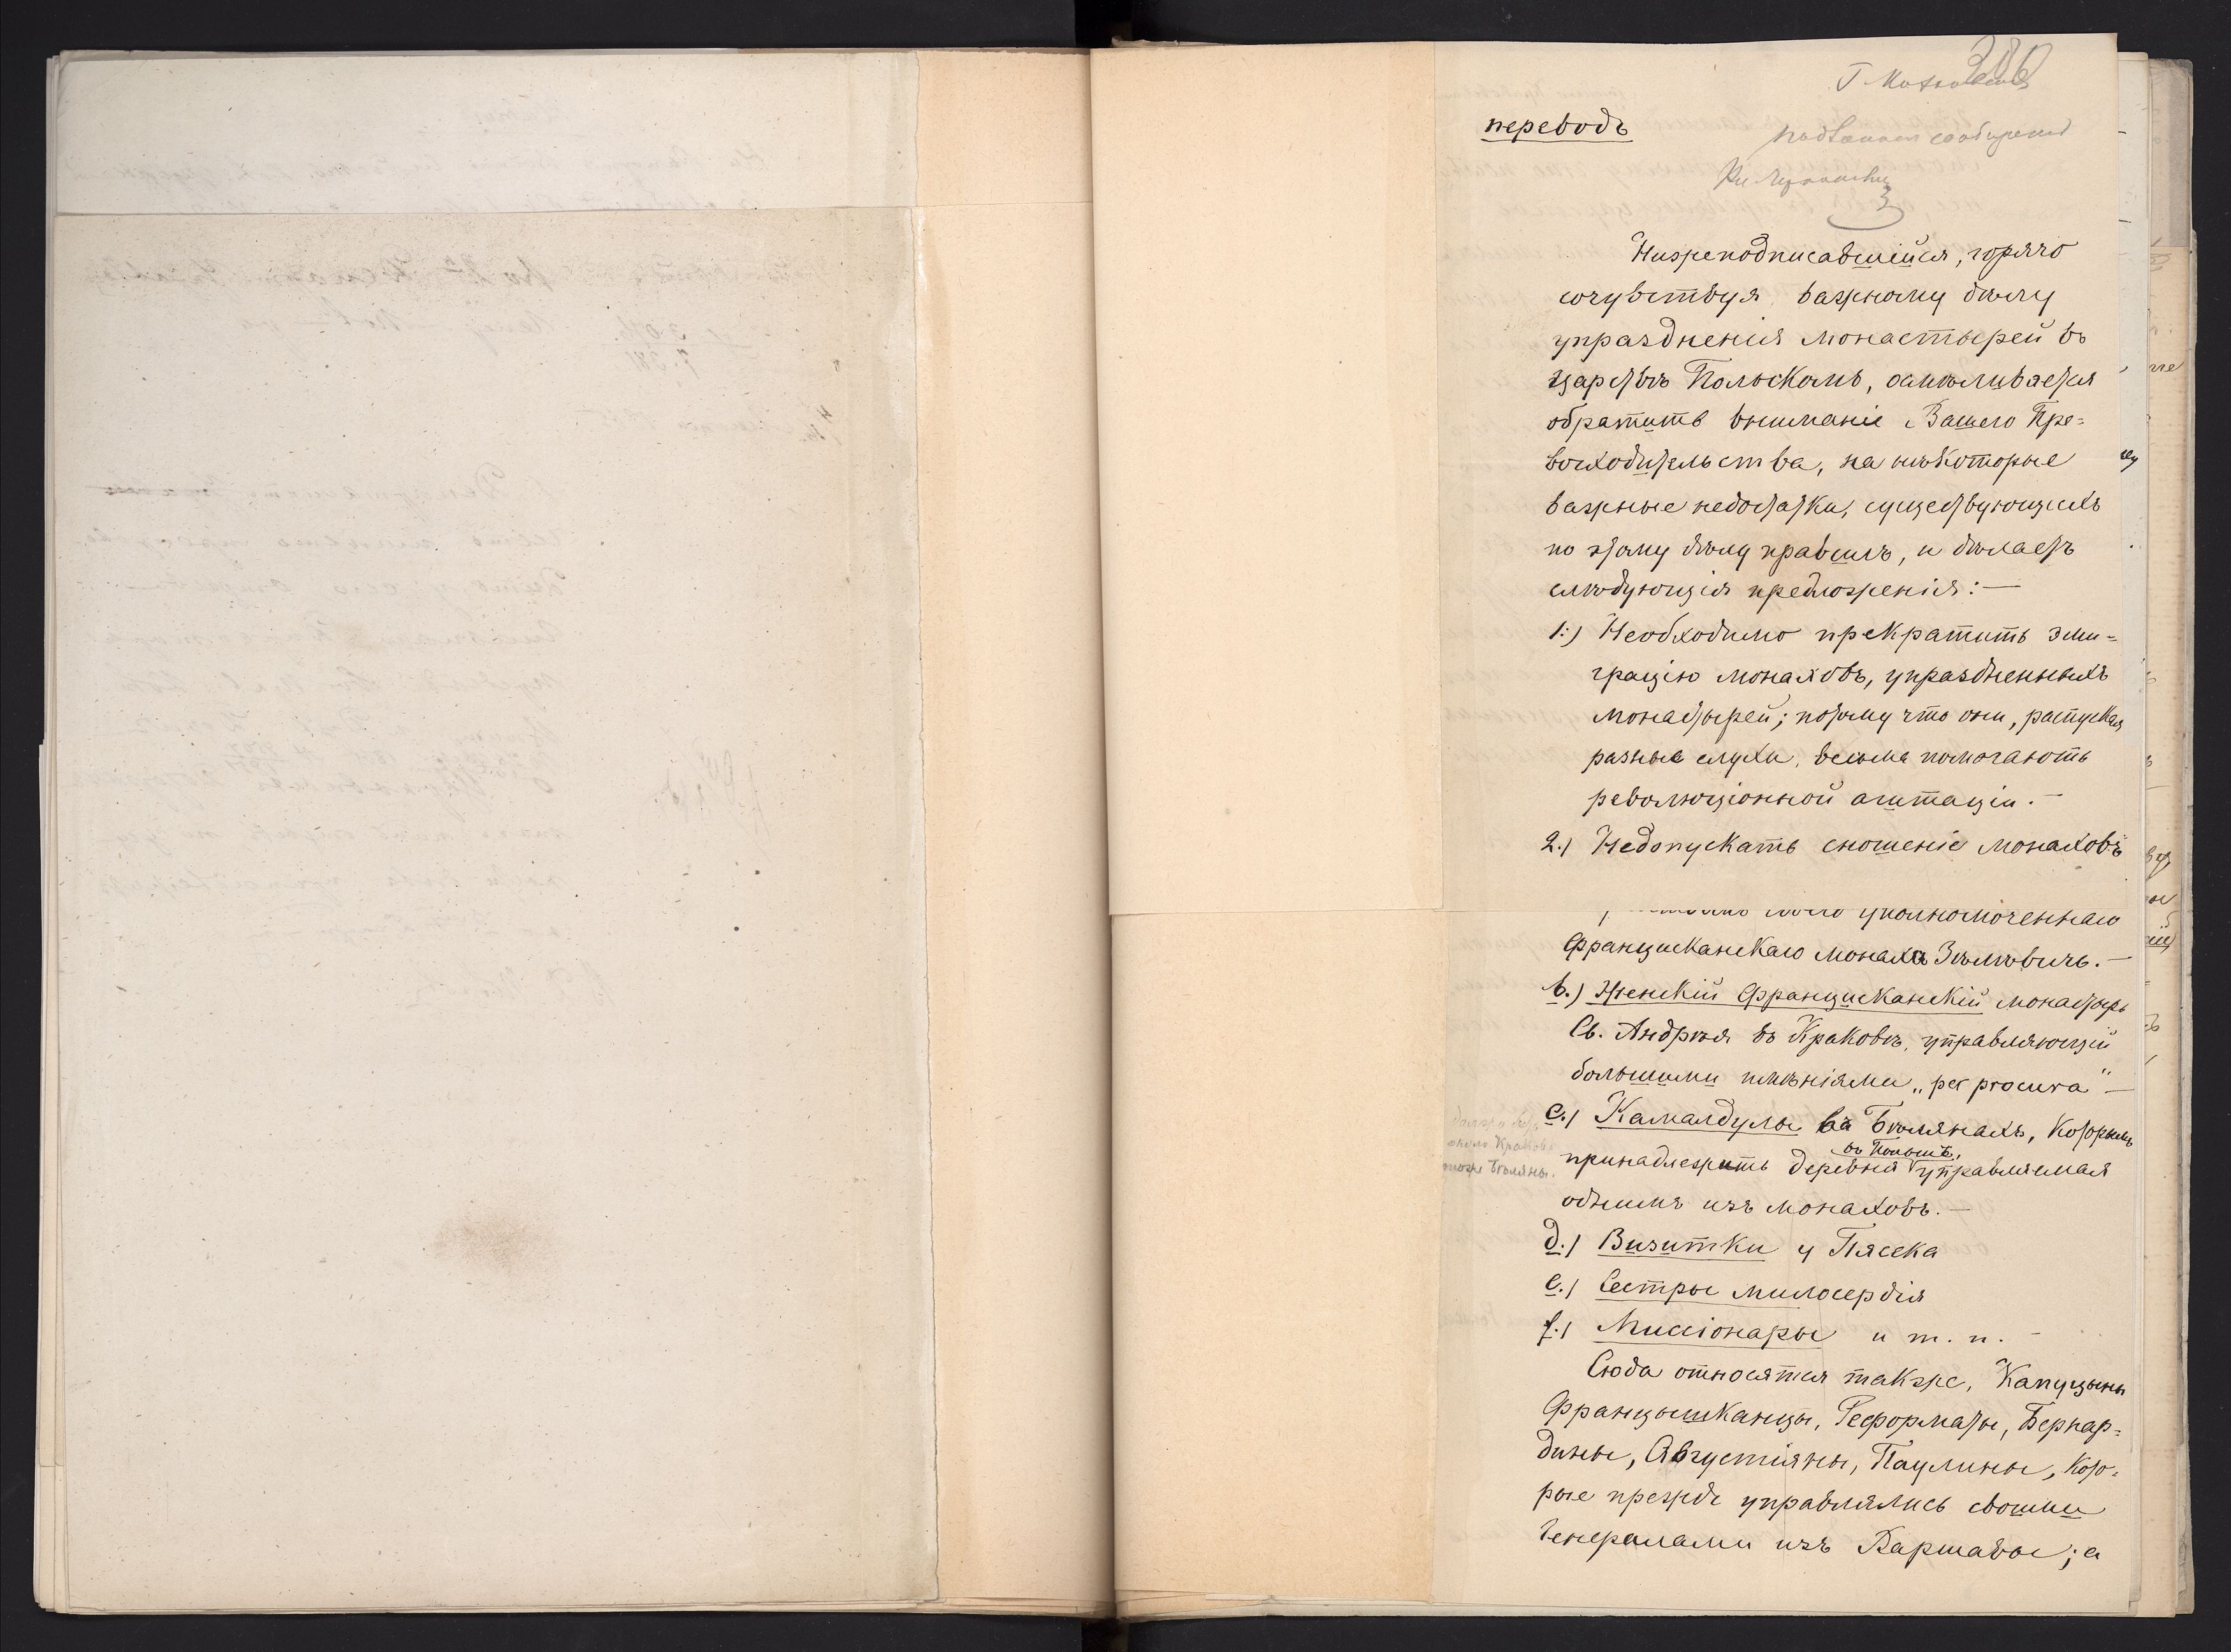 переводъ
Нижеподписавшійся, горячо
сочувствуя важному дѣлу
упраздненія монастырей въ
царствѣ Польскомъ, осмѣливается
обратить вниманіе Вашего Пре=
восходительства, на нѣкоторые
важные недостатки, существующихъ
по этому дѣлу правилъ, и дѣлаетъ
слѣдующія предложенія:—
1.) Необходимо прекратить эми=
грацію монаховъ, упраздненныхъ
монастырей; потому что они, распуская
разные слухи, весьма помогаютъ
революціонной агитаціи.—
2.) Недопускать сношеніе монаховъ
уполномоченнаго
Францисканскаго монаха Зѣлѣвичъ.—
b.) Женскій Францисканскій монастырь
Св. Андрѣя въ Краковѣ, управляющій
большими имѣніями „per procura"—
c.) Камалдулы въ Бѣлянахъ, которымъ
около Кракова
тоже Бѣляны.
въ Польшѣ,
принадлежитъ деревня управляемая
однимъ изъ монаховъ.—
d.) Визитки у Пясека
e.) Сестры милосердія
f.) Миссіонары и т. п.—
Сюда относятся также, Капуцыны
Францышканцы, Реформаты, Бернар=
дины, Августіяны, Паулины, кото=
рые прежде управлялись своими
Генералами изъ Варшавы; а